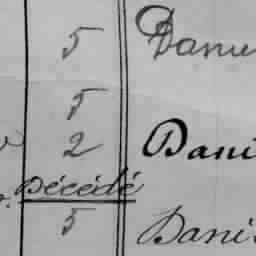 5 Danie
5
2 Dani
Décédé
5 Danis